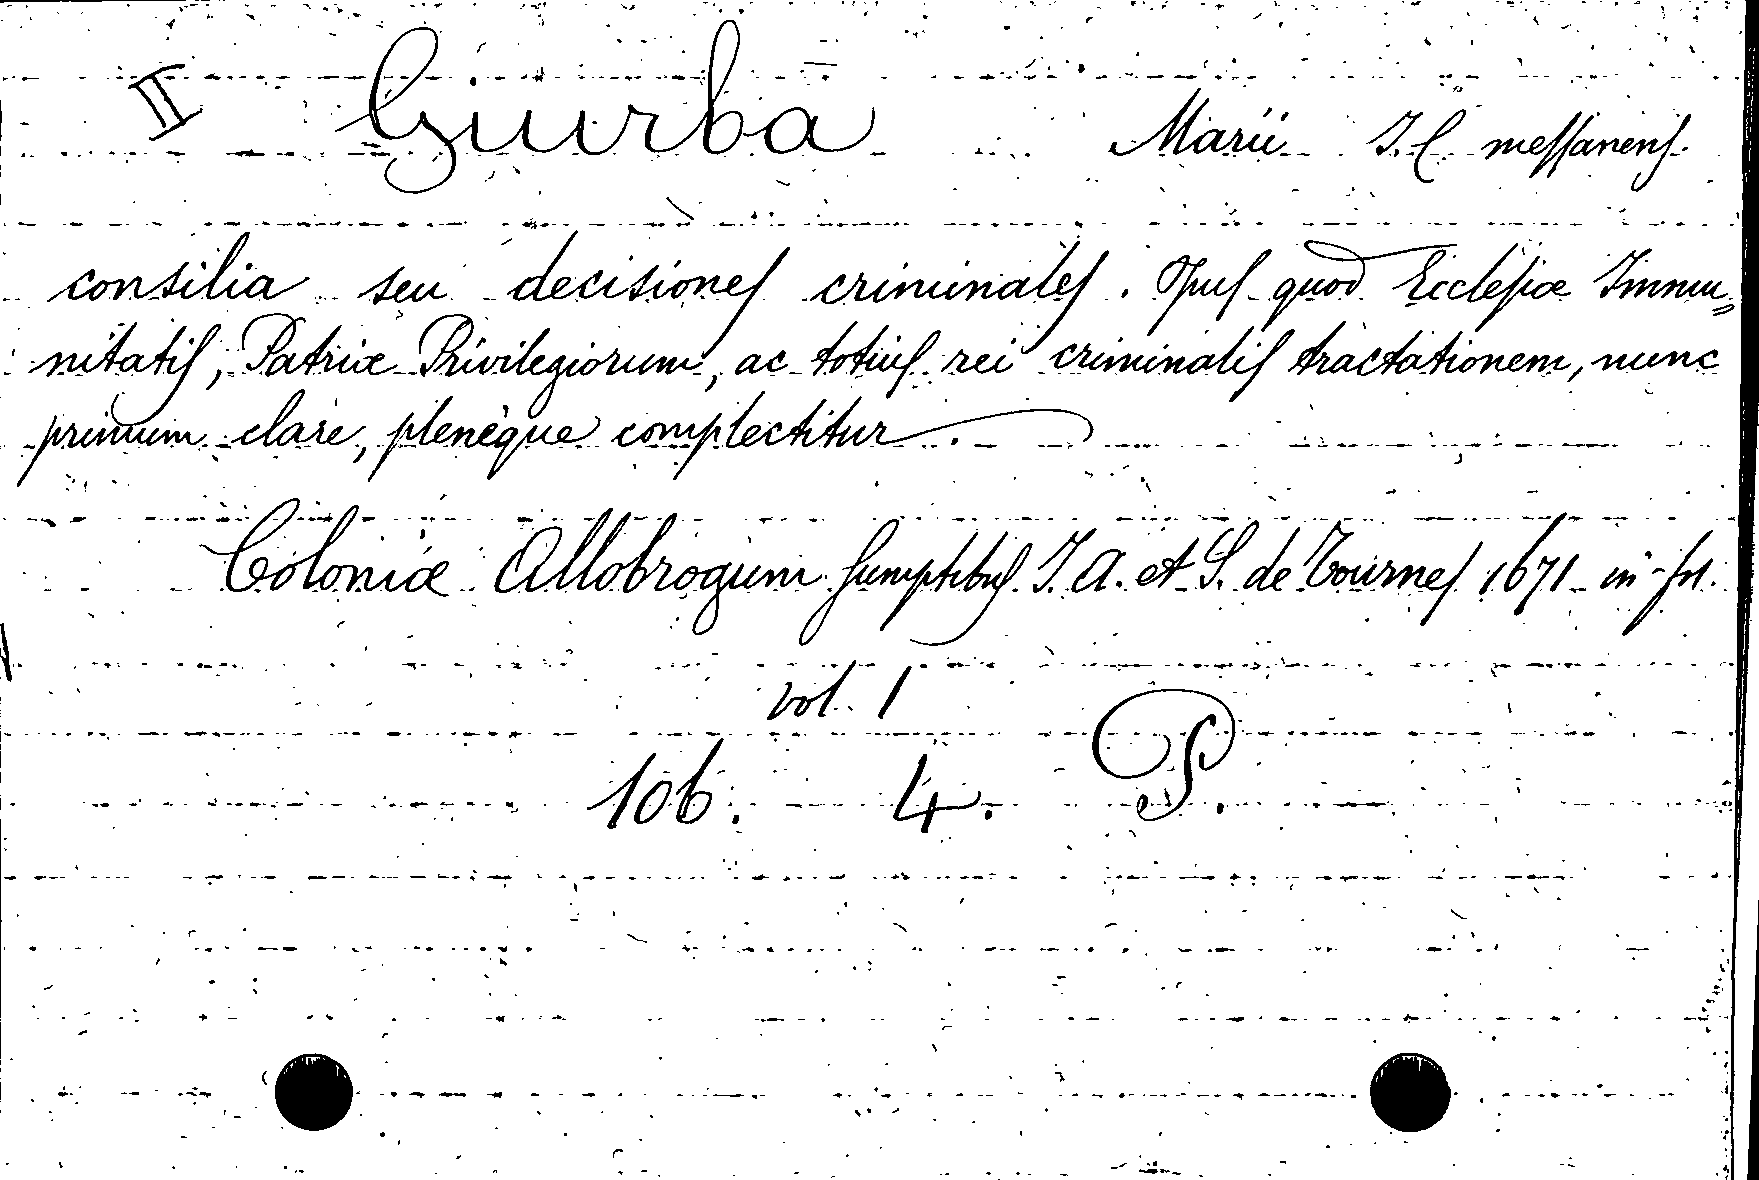 II Giurba Marii J.C. messanens.
consilia seu decisiones criminales. Opus quod Ecclesiæ Immu=
nitatis, Patriæ Privilegiorum, ac totius rei criminalis tractationem, nunc
primum clarè, plenèque complectitur.
Coloniæ Allobrogum sumptibus J. A. et S. de Tournes 1671 in-fol.
vol. 1
106. 4. P.